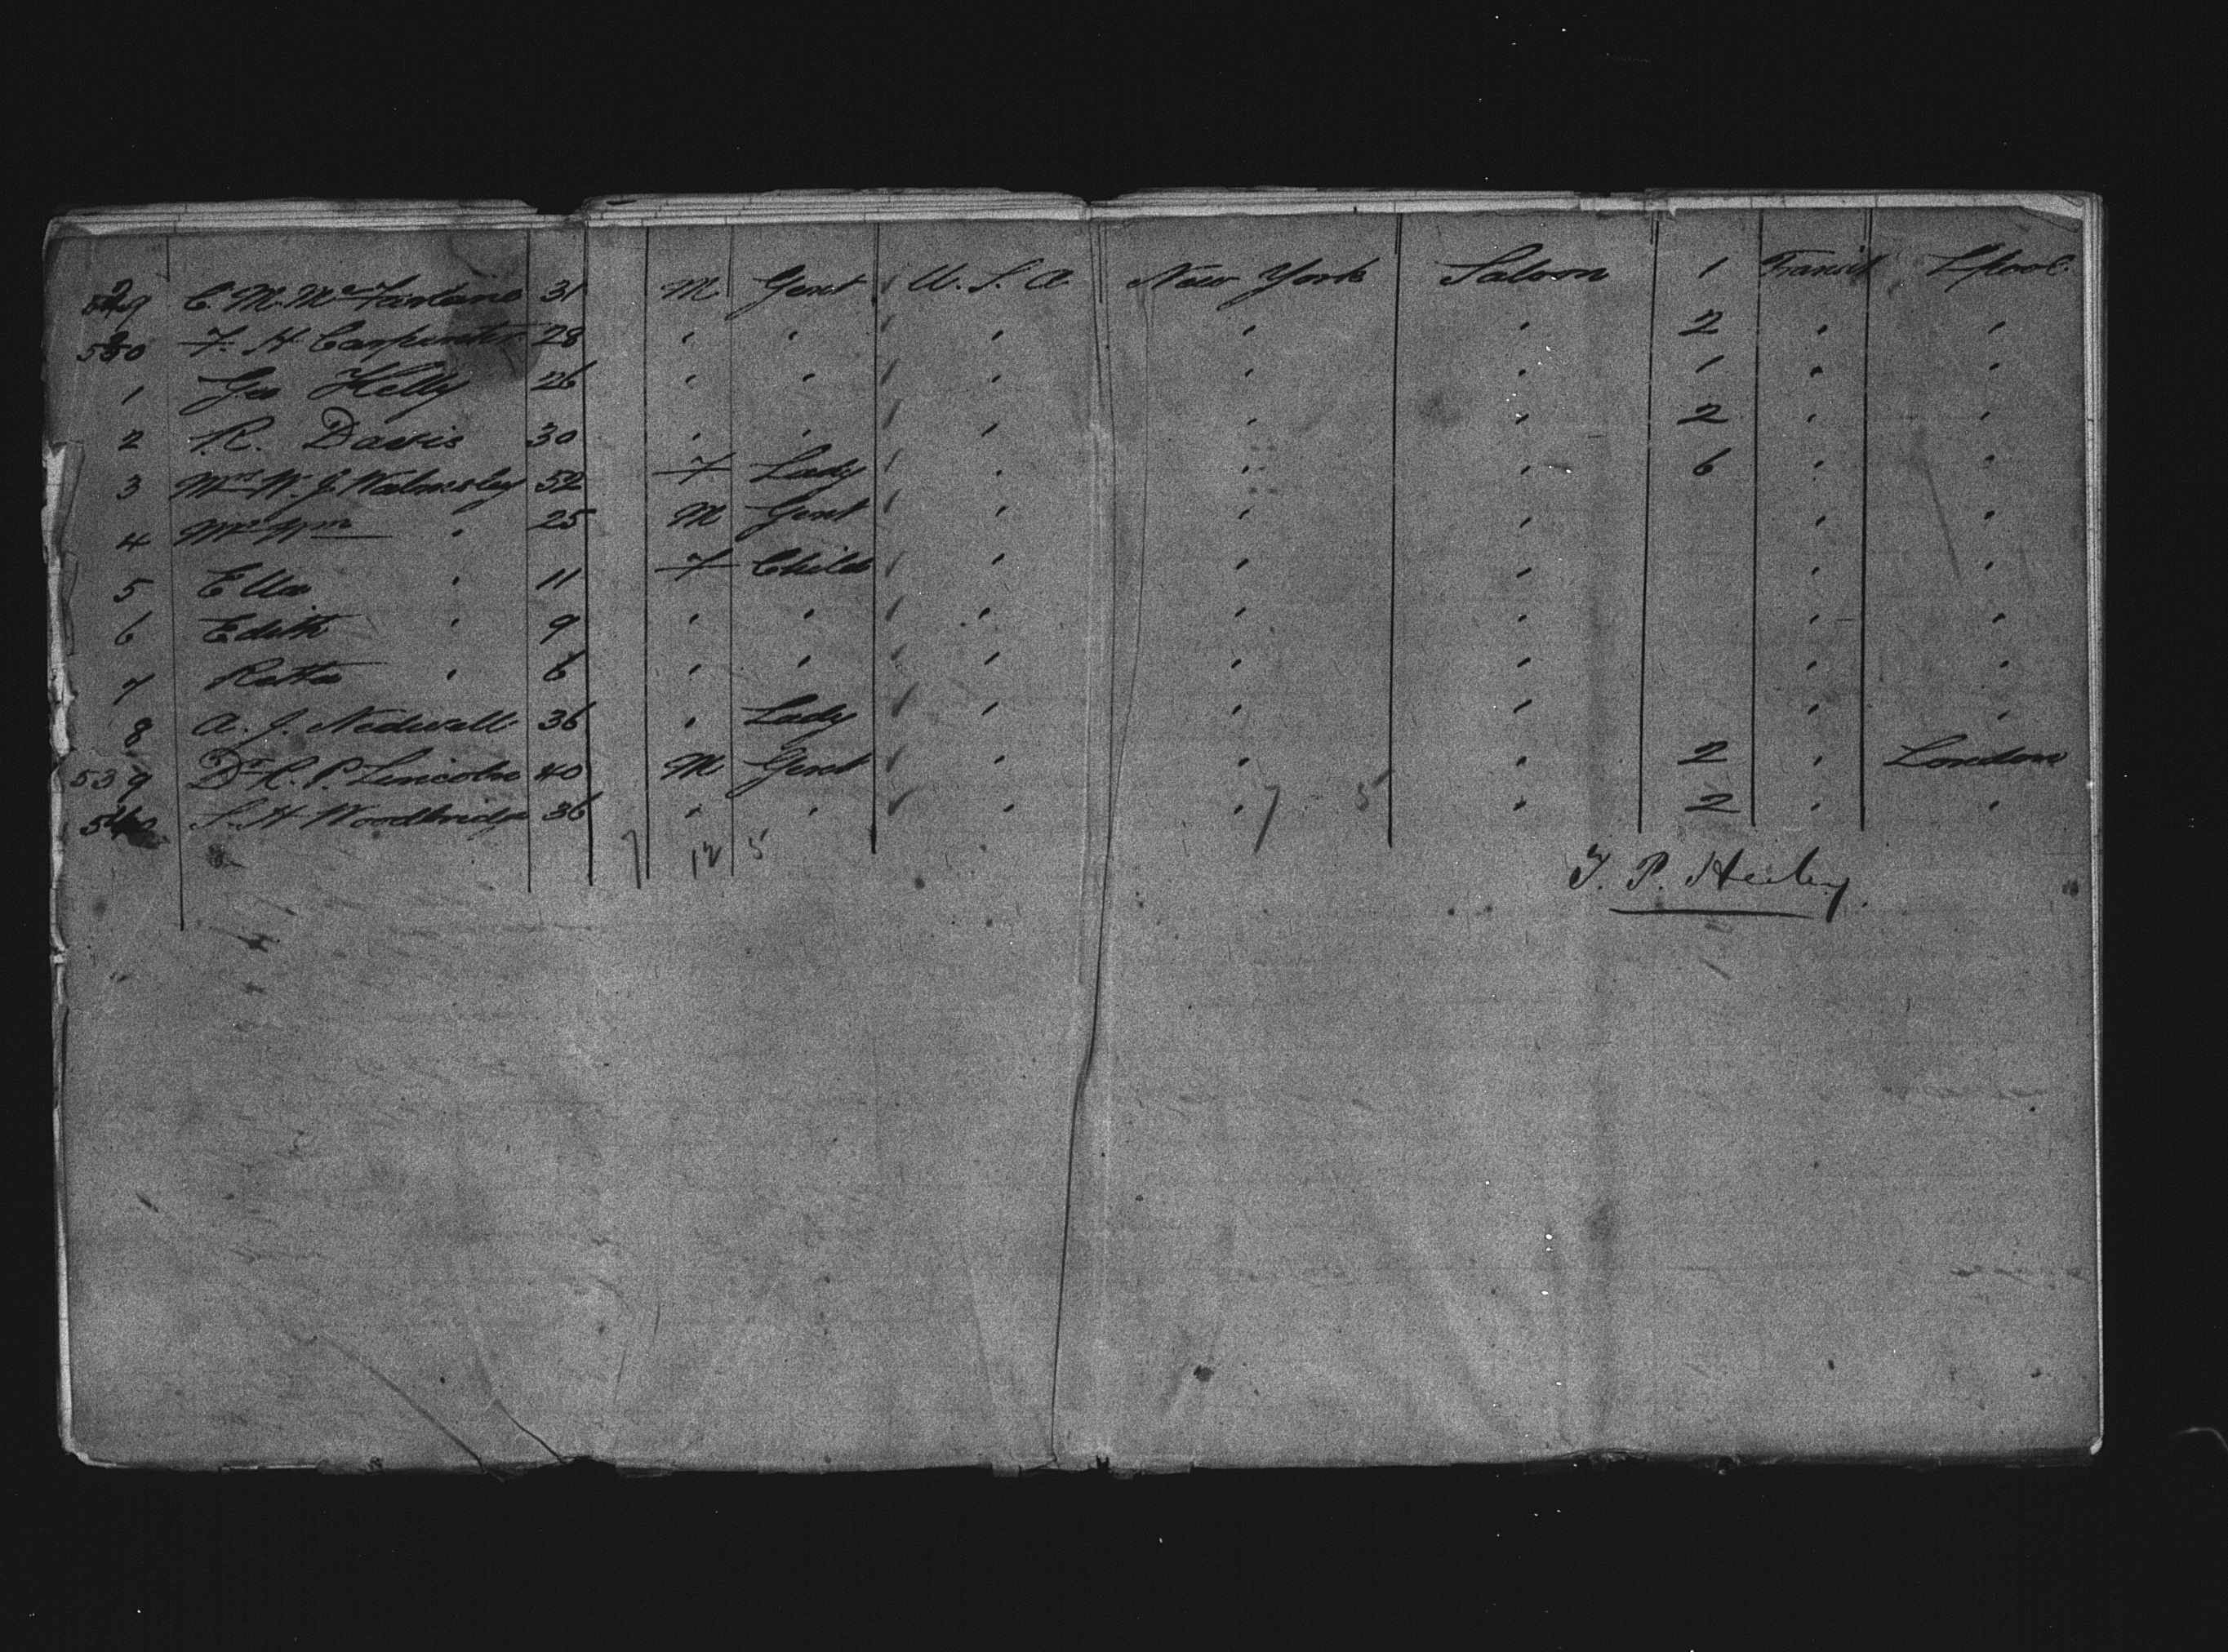 529 C. M. McFarlane 31 M Gent U.S.A. New York Saloon 1 Transit L'pool
530 F. H Carpenter 28 " " " " " 2 " "
1 Geo Kelly 26 " " " " " 1 " "
2 R. Davis 30 " " " " " 2 " "
3 Mrs W. J. Walmsley 52 F Lady " " " 6 " "
4 Mr Wm " 25 M Gent " " " " "
5 Ella " 11 F Child " " " " "
6 Edith " 9 " " " " " " "
7 Retta " 6 " " " " " " "
8 A. J. Nedwell 36 " Lady " " " " "
539 Dr R. P. Lincoln 40 M Gent " " " 2 " London
540 S. H Woodbridge 36 " " " " " 2 " "
7 12 5 7 5
T. P. Heiley